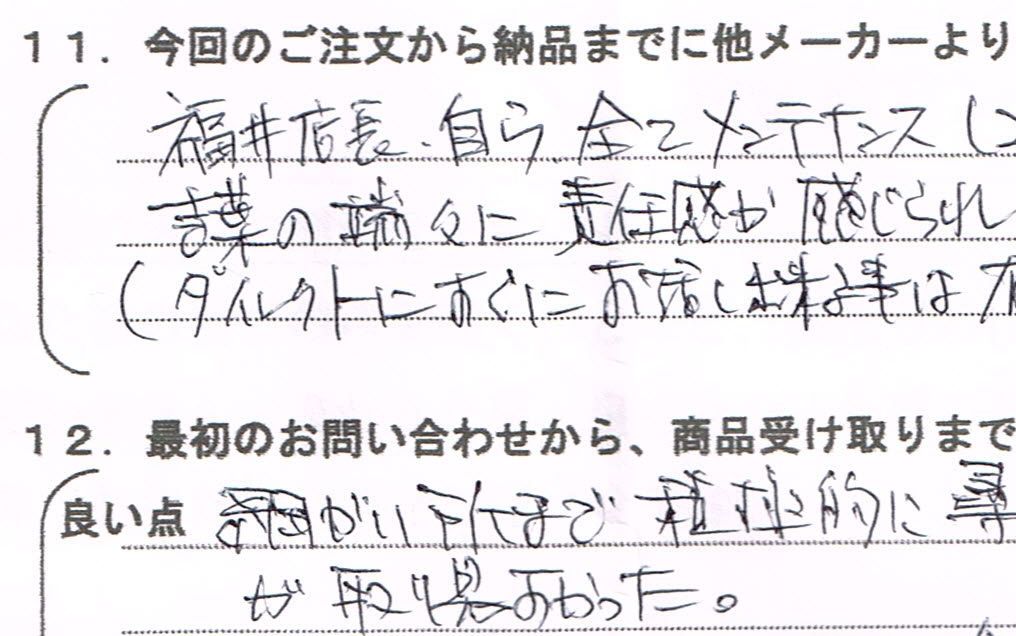 11. 今回のご注文から納品までに他メーカーより
福井店長、自ら、全てメンテナンス
言葉の端々に責任感が感じられ
(ダイレクトにすぐにお話し出来る事は
12. 最初のお問い合わせから、商品受け取りまで
良い点 細かい所まで積極的に
が